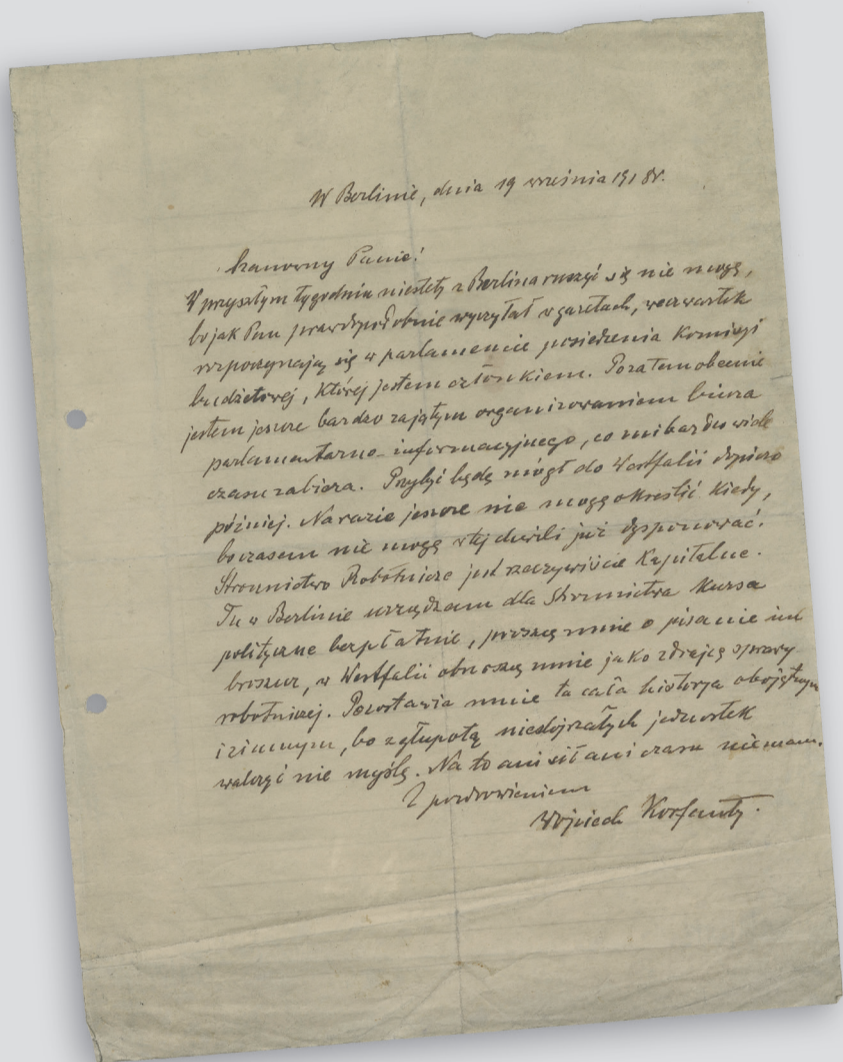 W Berlinie, dnia 19 września 1918r.
Szanowny Panie!
W przyszłym tygodniu niestety z Berlina ruszyć się nie mogę,
bo jak Pan prawdopodobnie wyczytał w gazetach, we czwartek
rozpoczynają się w parlamencie posiedzenia Komisyi
budżetowej, której jestem członkiem. Pozatem obecnie
jestem jeszcze bardzo zajętym organizowaniem biura
parlamentarno-informacyjnego, co mi bardzo wiele
czasu zabiera. Przybyć będę mógł do Westfalii dopiero
później. Narazie jeszcze nie mogę określić kiedy,
bo czasem nie mogę w tej chwili już dysponować.
Stronnictwo Robotnicze jest rzeczywiście Kapitalne.
Tu w Berlinie urządzam dla Stronnictwa Kursa
polityczne bezpłatnie, proszą mnie o pisanie im
broszur, w Westfalii obnoszą mnie jako zdrajcę sprawy
robotniczej. Pozostawia mnie ta cała historya obojętnym
i zimnym, bo z głupotą niedojrzałych jednostek
walczyć nie myślę. Na to ani sił ani czasu nie mam.
Z pozdrowieniem
Wojciech Korfanty.